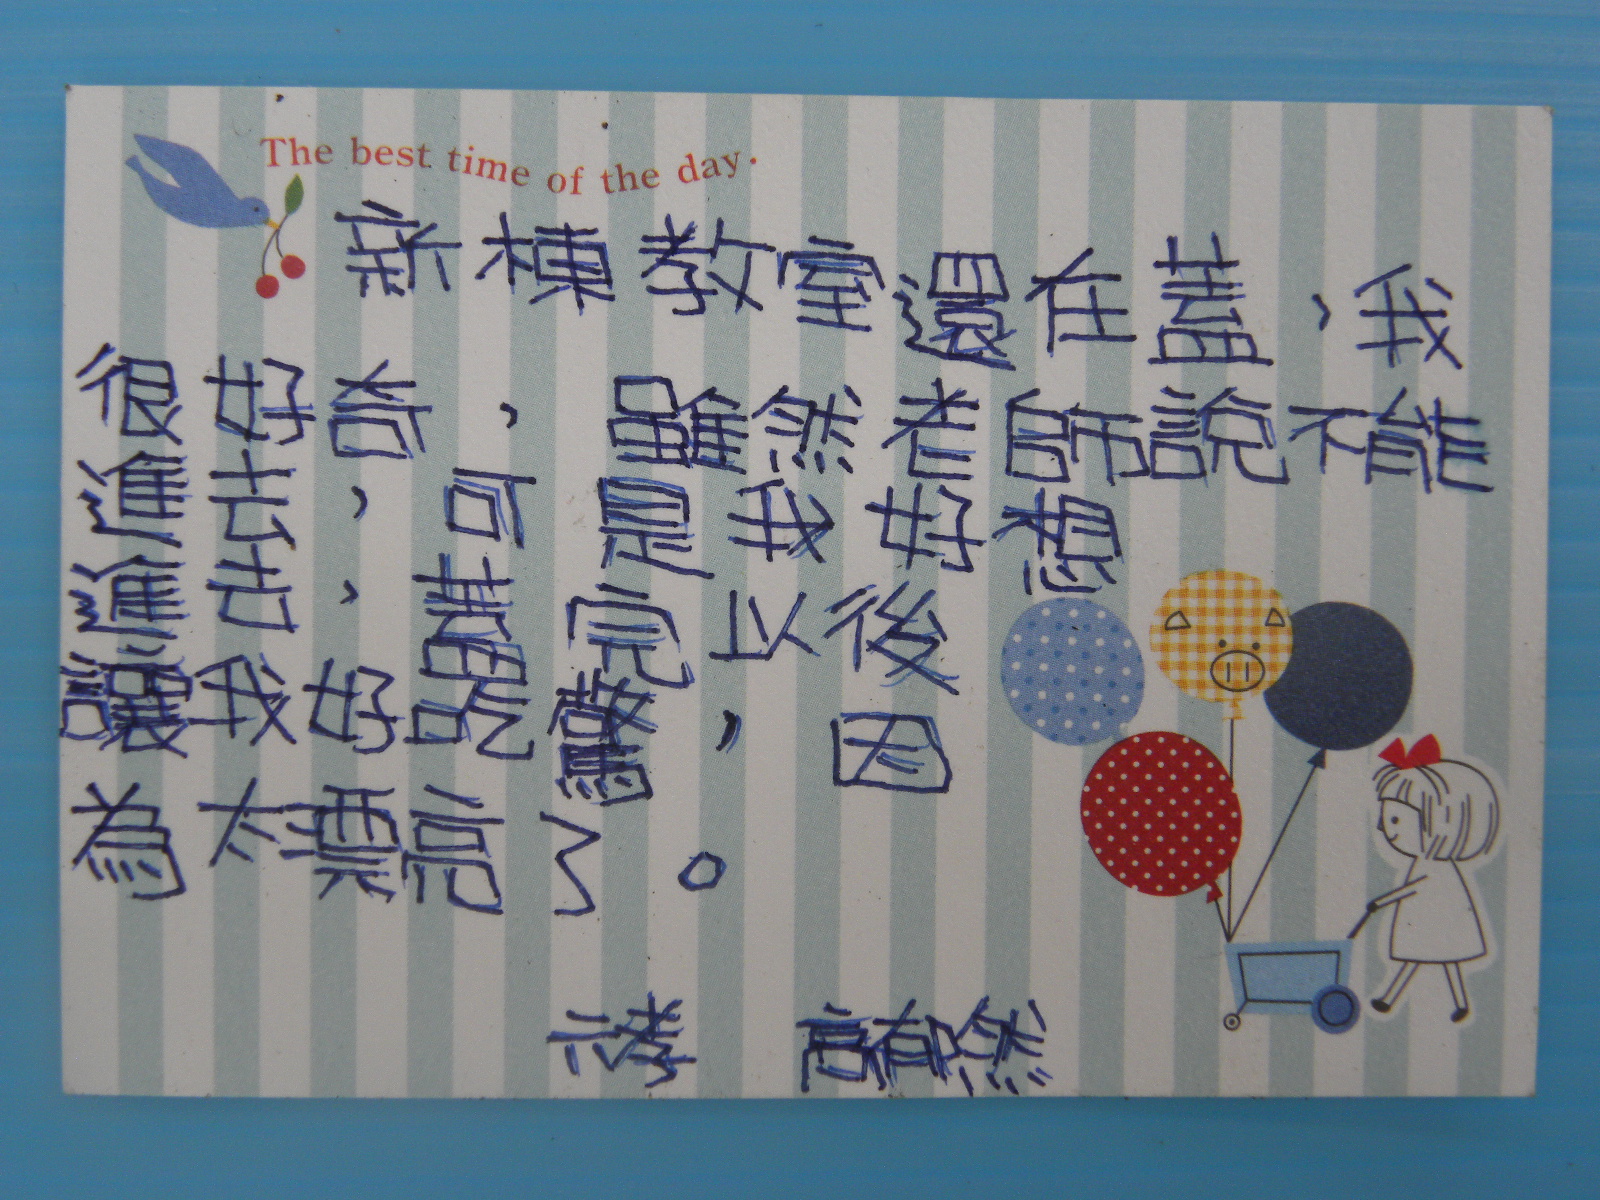 The best time of the day.
新棟教室還在蓋，我
很好奇，雖然老師說不能
進去，可是我好想
進去，蓋完以後
讓我好吃驚，因
為太漂亮了。
六孝 高郁然